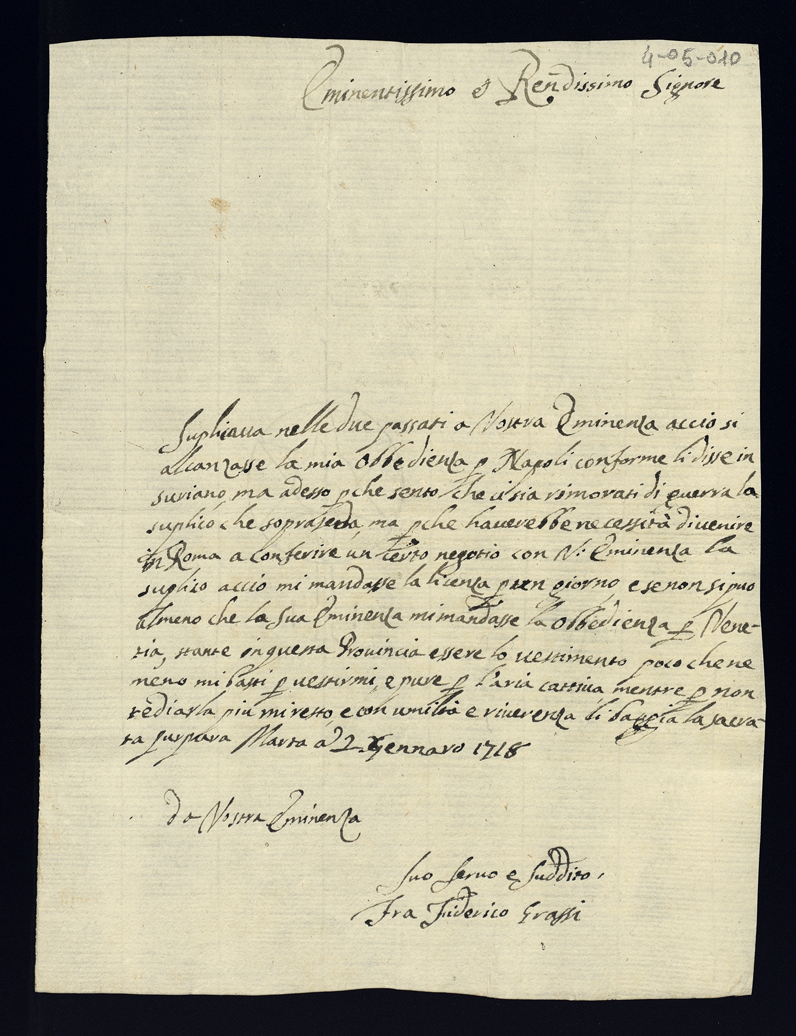 4-05-010
Eminentissimo e Rendissimo Signore
Supliava nelle due passati a Vostra Eminenza acciò si
alcanzasse la mia Obbedienza p Napoli conforme li disse in
suriano, ma adesso pche sento che ci sia rimorati di guerra la
suplico che soprasedà, ma pche haverebbe necessità di venire
in Roma a conferire un certo negotio con V: Eminenza la
suplico acciò mi mandasse la licenza p un giorno e se non si può
almeno che la sua Eminenza mi mandasse la Obbedienza p Vene-
tia, stante in questa Provincia essere lo vestimento poco che ne
meno mi basti p vestirmi, e pure p l'aria cattiva mentre p non
tediarla più mi resto, e con umiltà e riverenza li baggia la sacra-
ta purpura Marta a 2 Gennaro 1718
da Vostra Eminenza
Suo Servo e Suddito,
Fra Grassi